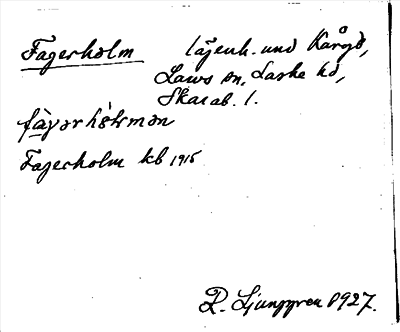 Fagerholm lägenh. und Kårgd,
Laws sn, Laske hd,
Skarab. l.
fàɣərhólmən
Fagerholm kb 1915
R. Ljunggren 1927.